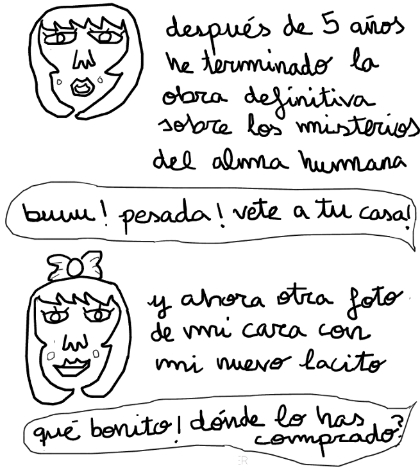 después de 5 años
he terminado la
obra definitiva
sobre los misterios
del alma humana
buuu! pesada! vete a tu casa!
y ahora otra foto
de mi cara con
mi nuevo lacito
qué bonito! dónde lo has
comprado?